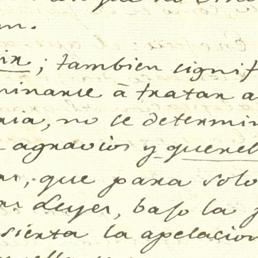 m.
in; tambien signif
minarse a tratar a
ria, no se determin
agravios y querel
as; que para solo
as Leyes, bajo la
sienta la apelacion